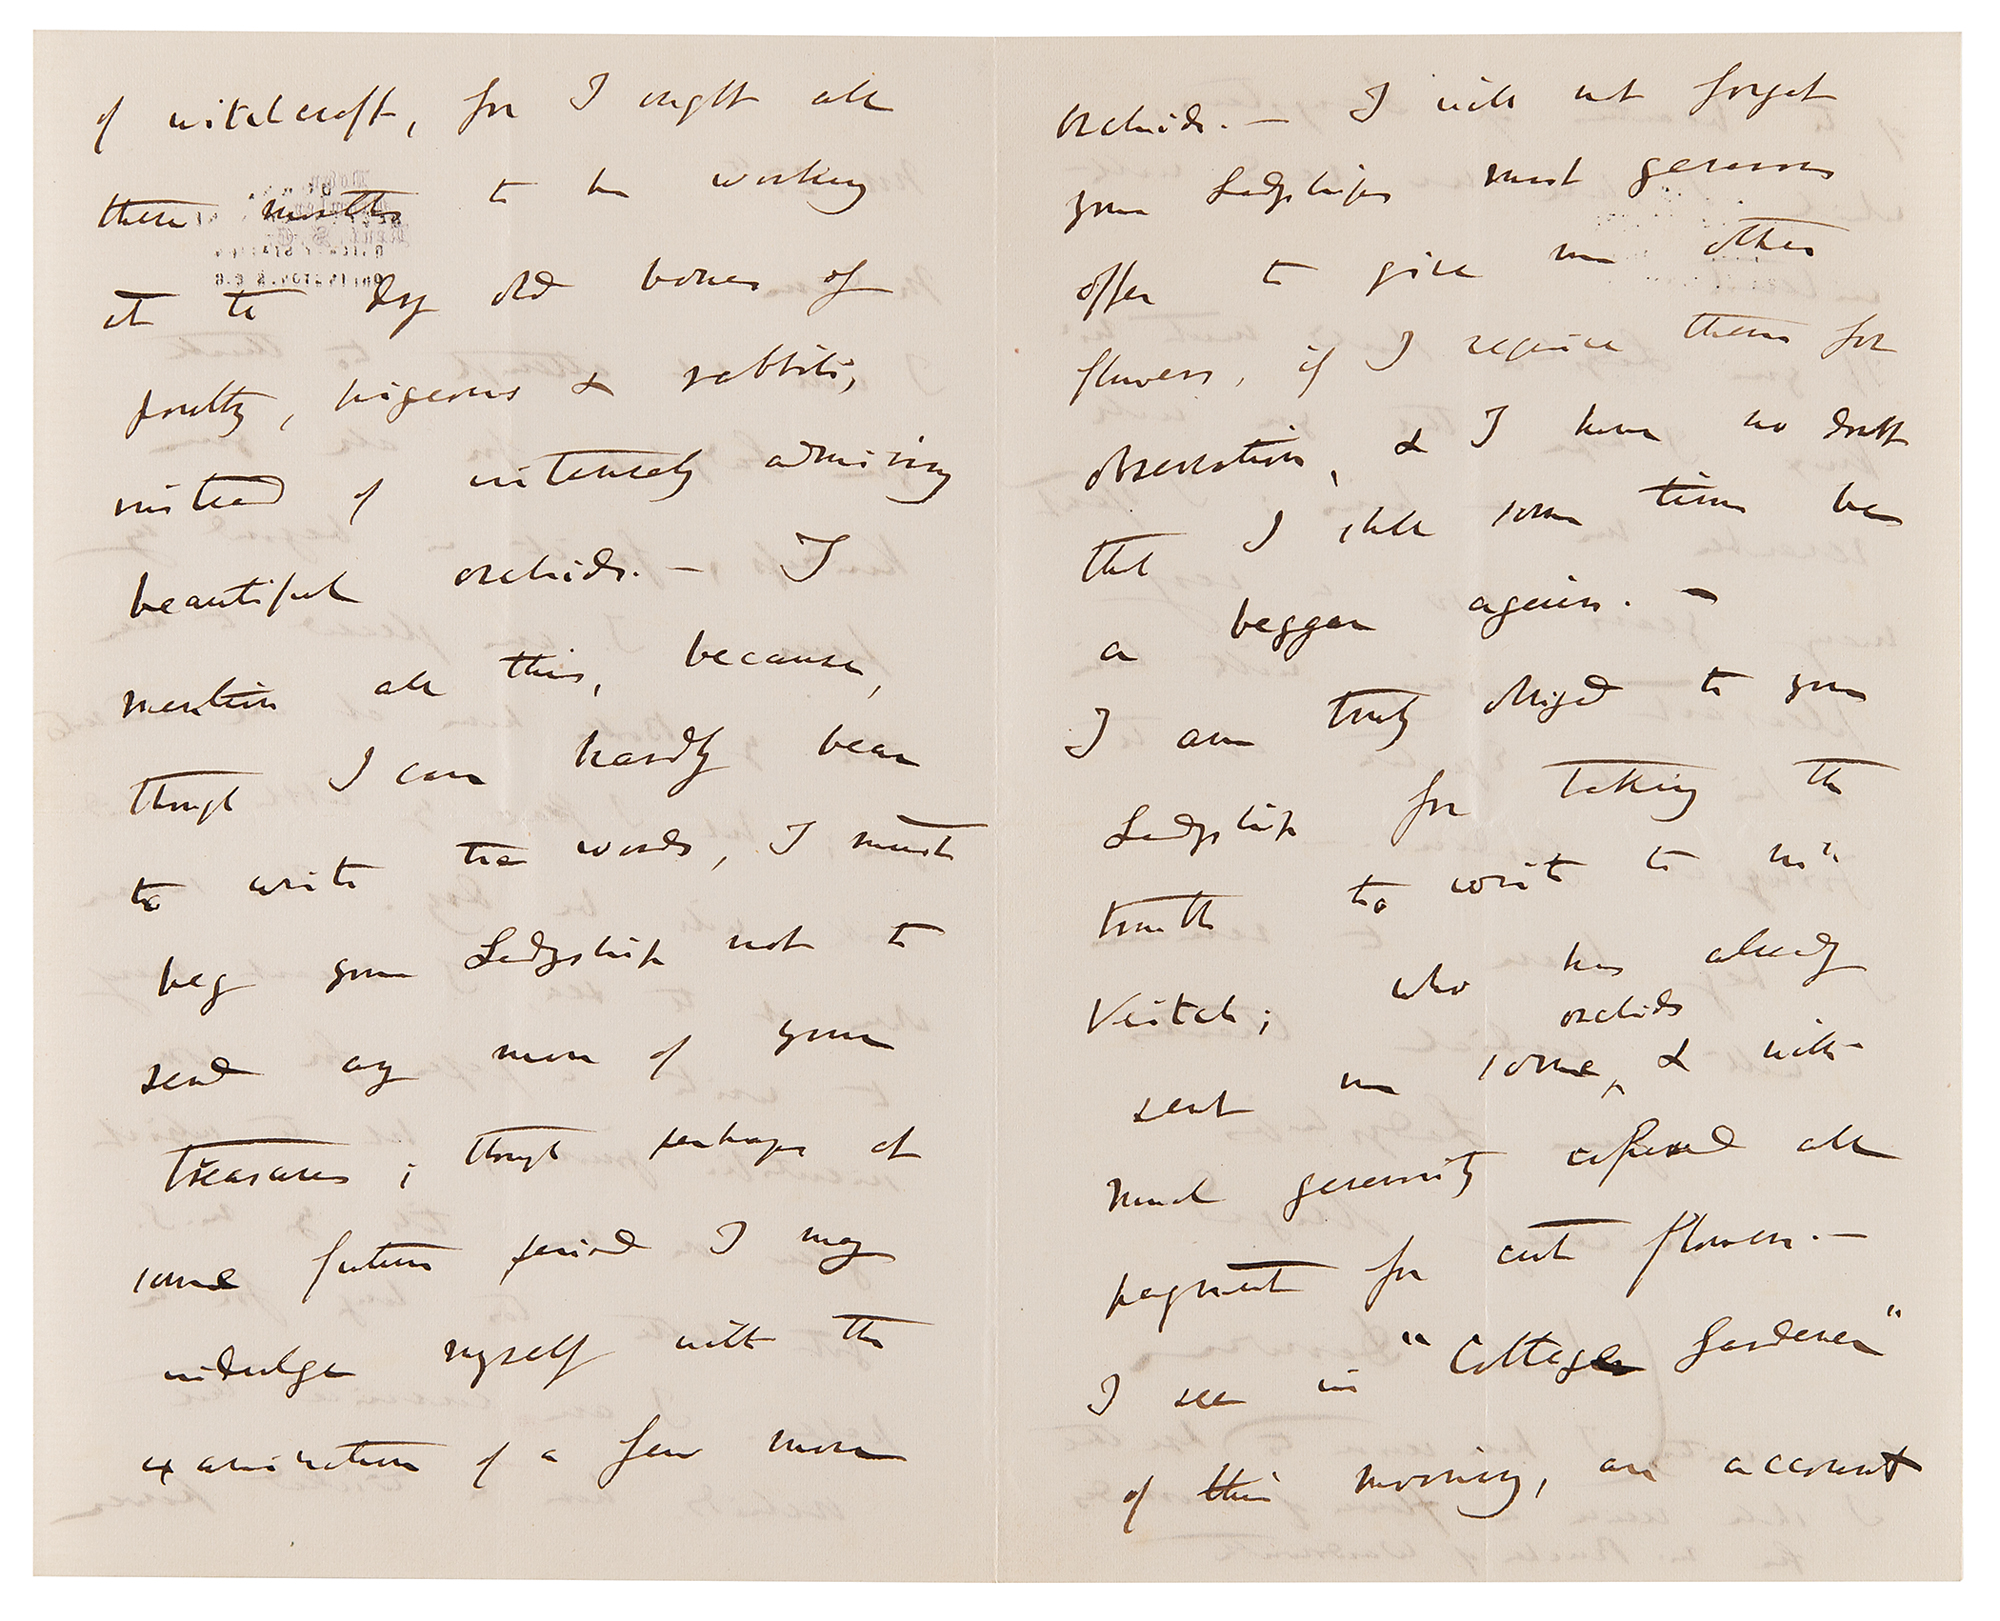 of witchcraft, for I ought all
these months to be working
at the dry old bones of
poultry, pigeons & rabbits,
instead of intensely admiring
beautiful orchids. — I
mention all this, because,
though I can hardly bear
to write the words, I must
beg your Ladyship not to
send any more of your
treasures; though perhaps at
some future period I may
indulge myself with the
examination of a few more
orchids. — I will not forget
your Ladyships most generous
offer to give me other
flowers, if I require them for
observation, & I have no doubt
that I shall some time be
a beggar again. —
I am truly obliged to your
Ladyship for taking the
trouble to write to Mr
Veitch; who has already
sent me some orchids, & with
much generosity refused all
payment for cut flowers. —
I see in "Cottage Gardener"
of this morning, an account